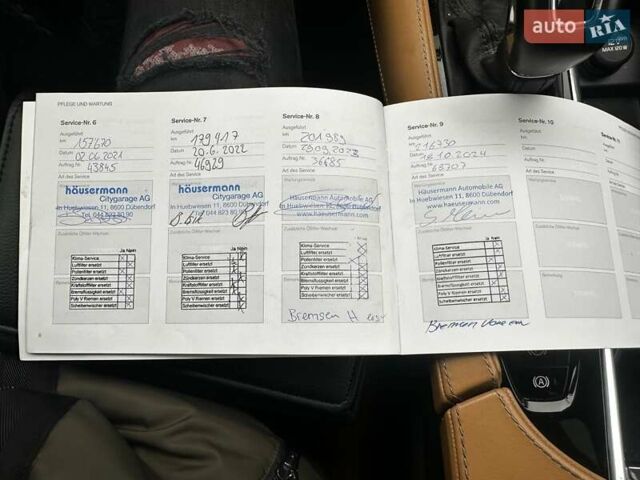 auto RIA
.com
12 V
MAX 120 W
PFLEGE UND WARTUNG
Service-Nr. 6
Ausgeführt
km 157670
Datum 02.06.2021
Auftrag Nr. 43845
Art des Service
häusermann
Citygarage AG
In Huebwiesen 11, 8600 Dübendorf
Tel. 044 823 80 90
Zusätzliche Ölfilter-Wechsel
Ja Nein
Klima-Service
Luftfilter ersetzt
Pollenfilter ersetzt
Zündkerzen ersetzt
Kraftstofffilter ersetzt
Bremsflüssigkeit ersetzt
Poly V Riemen ersetzt
Scheibenwischer ersetzt
6
Service-Nr. 7
Ausgeführt
km 179417
Datum 20.6.2022
Auftrag Nr. 46929
Art des Service
häusermann
Citygarage AG
In Huebwiesen 11, 8600 Dübendorf
Tel. 044 823 80 90
Zusätzliche Ölfilter-Wechsel
Ja Nein
Klima-Service
Luftfilter ersetzt
Pollenfilter ersetzt
Zündkerzen ersetzt
Kraftstofffilter ersetzt
Bremsflüssigkeit ersetzt
Poly V Riemen ersetzt
Scheibenwischer ersetzt
Service-Nr. 8
Ausgeführt
km 201989
Datum
Auftrag Nr. 36685
Art des Service
Häusermann Automobile AG
In Huebwiesen 11, 8600 Dübendorf
www.hausermann.com
Zusätzliche Ölfilter-Wechsel
Ja Nein
Klima-Service
Luftfilter ersetzt
Pollenfilter ersetzt
Zündkerzen ersetzt
Kraftstofffilter ersetzt
Bremsflüssigkeit ersetzt
Poly V Riemen ersetzt
Scheibenwischer ersetzt
Bremsen H
Service-Nr. 9
Ausgeführt
km 216730
Datum 18.10.2024
Auftrag Nr. 68707
Art des Service
Häusermann Automobile AG
In Huebwiesen 11, 8600 Dübendorf
www.hausermann.com
Zusätzliche Ölfilter-Wechsel
Ja Nein
Klima-Service
Luftfilter ersetzt
Pollenfilter ersetzt
Zündkerzen ersetzt
Kraftstofffilter ersetzt
Bremsflüssigkeit ersetzt
Poly V Riemen ersetzt
Scheibenwischer ersetzt
Bremsen
Service-Nr. 10
Ausgeführt
km
Datum
Auftrag Nr.
Art des Service
Service-Nr. 11